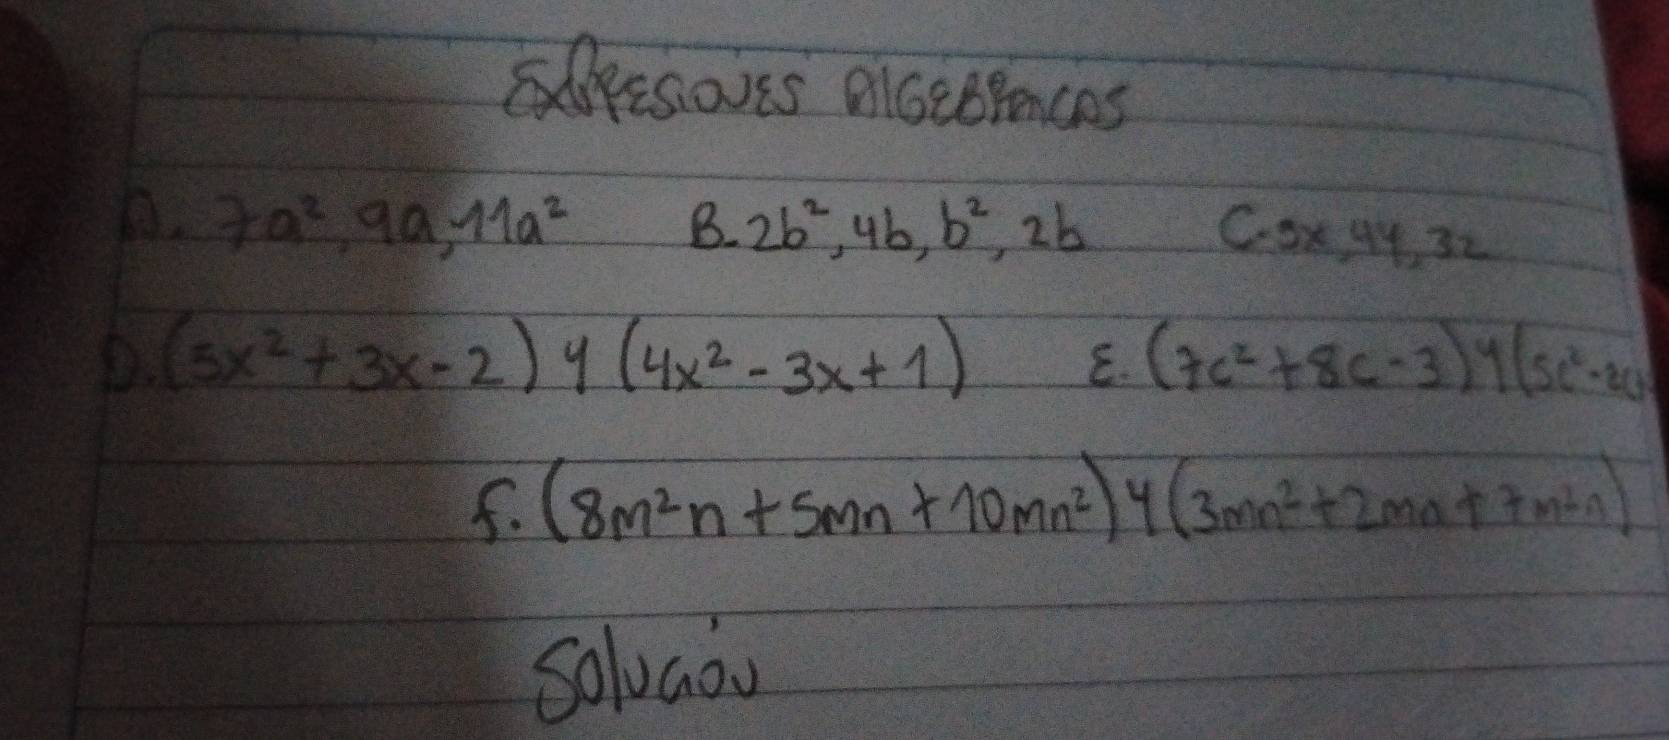 EXPRESIONES AlGEBRAICAS
A. 7a², 9a, 11a² B. 2b², 4b, b², 2b C. 5x, 4y, 3z
D. (5x² + 3x - 2) y (4x² - 3x + 1) E. (7c² + 8c - 3) y (5c² - 2c
f. (8m²n + 5mn + 10mn²) y (3mn² + 2mn + 7m²n)
Solución